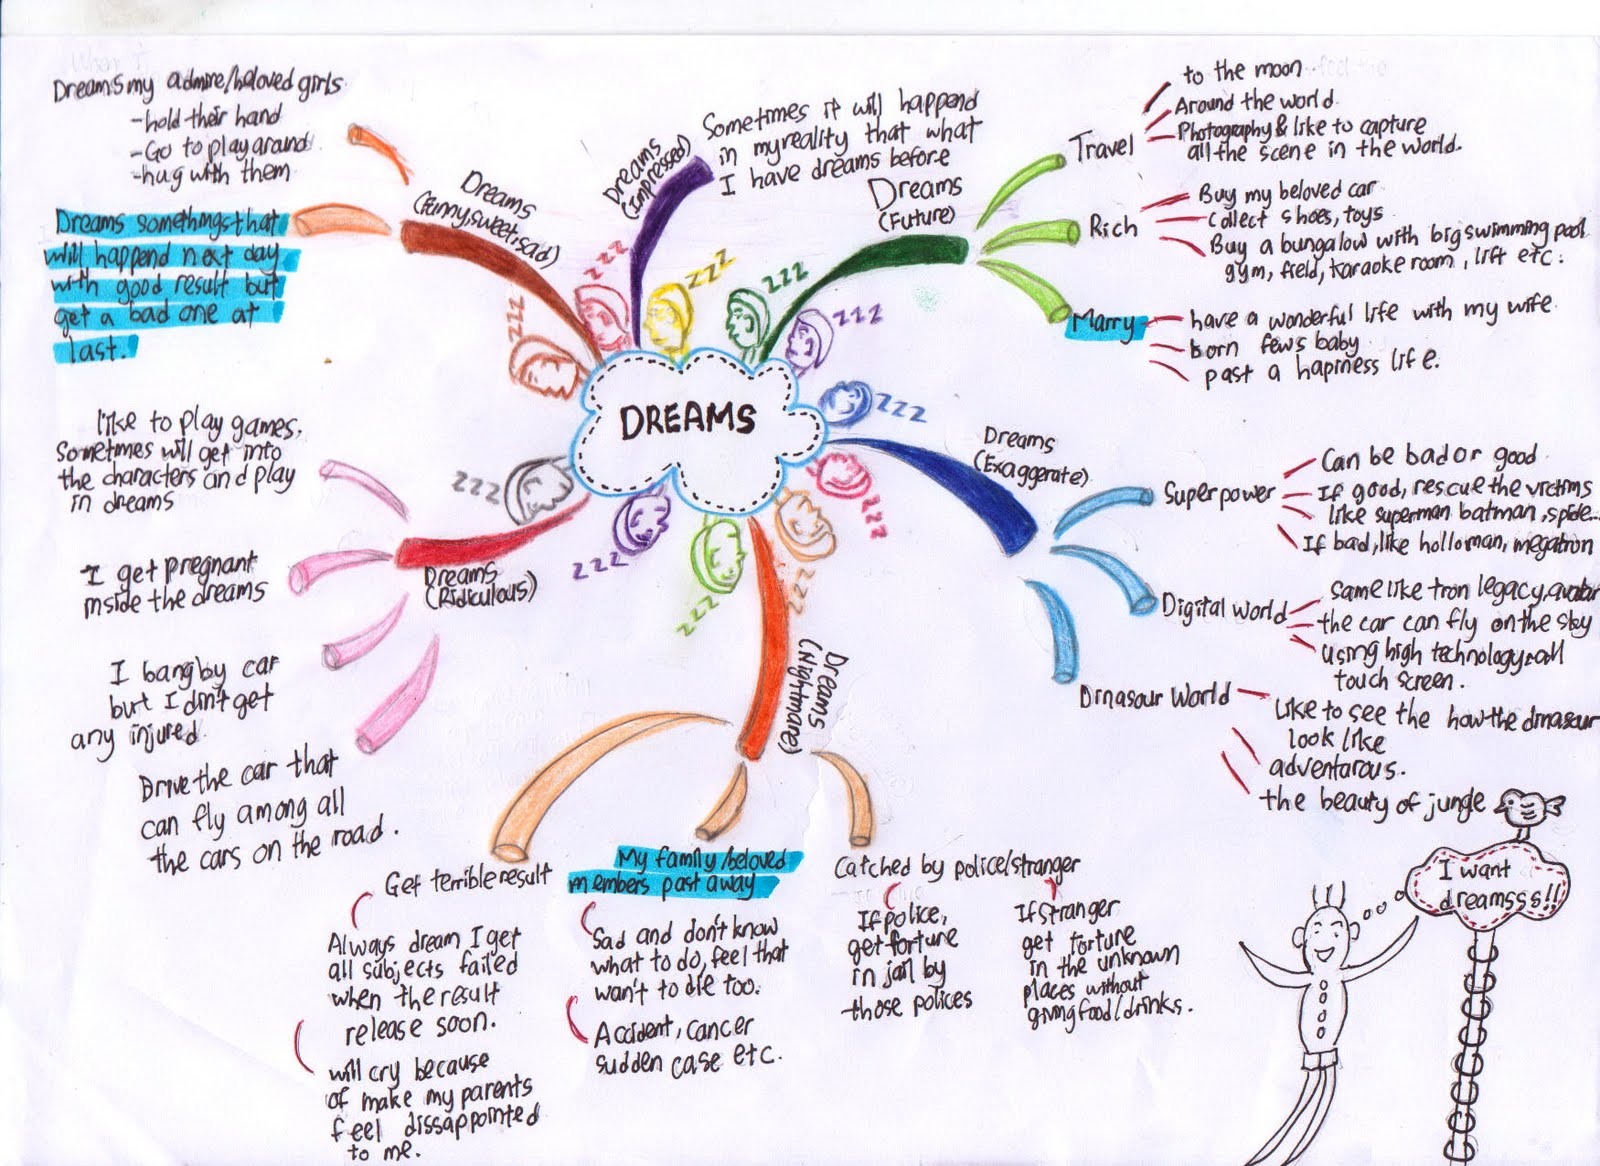 DREAMS
Dreams
(Funny, sweet, sad)
Dreams my admire/beloved girls
-hold their hand
-Go to play around
-hug with them
Dreams somethings that
will happend next day
with good result but
get a bad one at
last.
Dreams
(impressed)
Sometimes it will happend
in my reality that what
I have dreams before
Dreams
(Future)
Travel
to the moon
Around the world
Photography & like to capture
all the scene in the world.
Rich
Buy my beloved car
Collect shoes, toys
Buy a bungalow with big swimming pool
gym, field, karaoke room, lift etc.
Marry
have a wonderful life with my wife
born fews baby
past a hapiness life.
Dreams
(Exaggerate)
Superpower
Can be bad or good
If good, rescue the victims
like superman batman, spide...
If bad, like holloman, megatron
Digital world
same like tron legacy, avatar
the car can fly on the sky
using high technology & all
touch screen.
Dinasour World
Like to see the how the dinasour
look like
adventarous.
the beauty of jungle
Dreams
(Nightmare)
Get terrible result
Always dream I get
all subjects failed
when the result
release soon.
will cry because
of make my parents
feel dissappointed
to me.
My family/beloved
members past away
Sad and don't know
what to do, feel that
wan't to die too.
Accident, cancer
sudden case etc.
Catched by police/stranger
If police,
get fortune
in jail by
those polices
If stranger
get fortune
in the unknown
places without
giving food/drinks.
Dreams
(Ridiculous)
like to play games,
sometimes will get into
the characters and play
in dreams
I get pregnant
inside the dreams
I bang by car
but I din't get
any injured
Drive the car that
can fly among all
the cars on the road.
I want
dreamsss!!
zzz
zzz
zzz
zzz
zzz
zzz
zzz
zzz
zzz
zzz
zzz